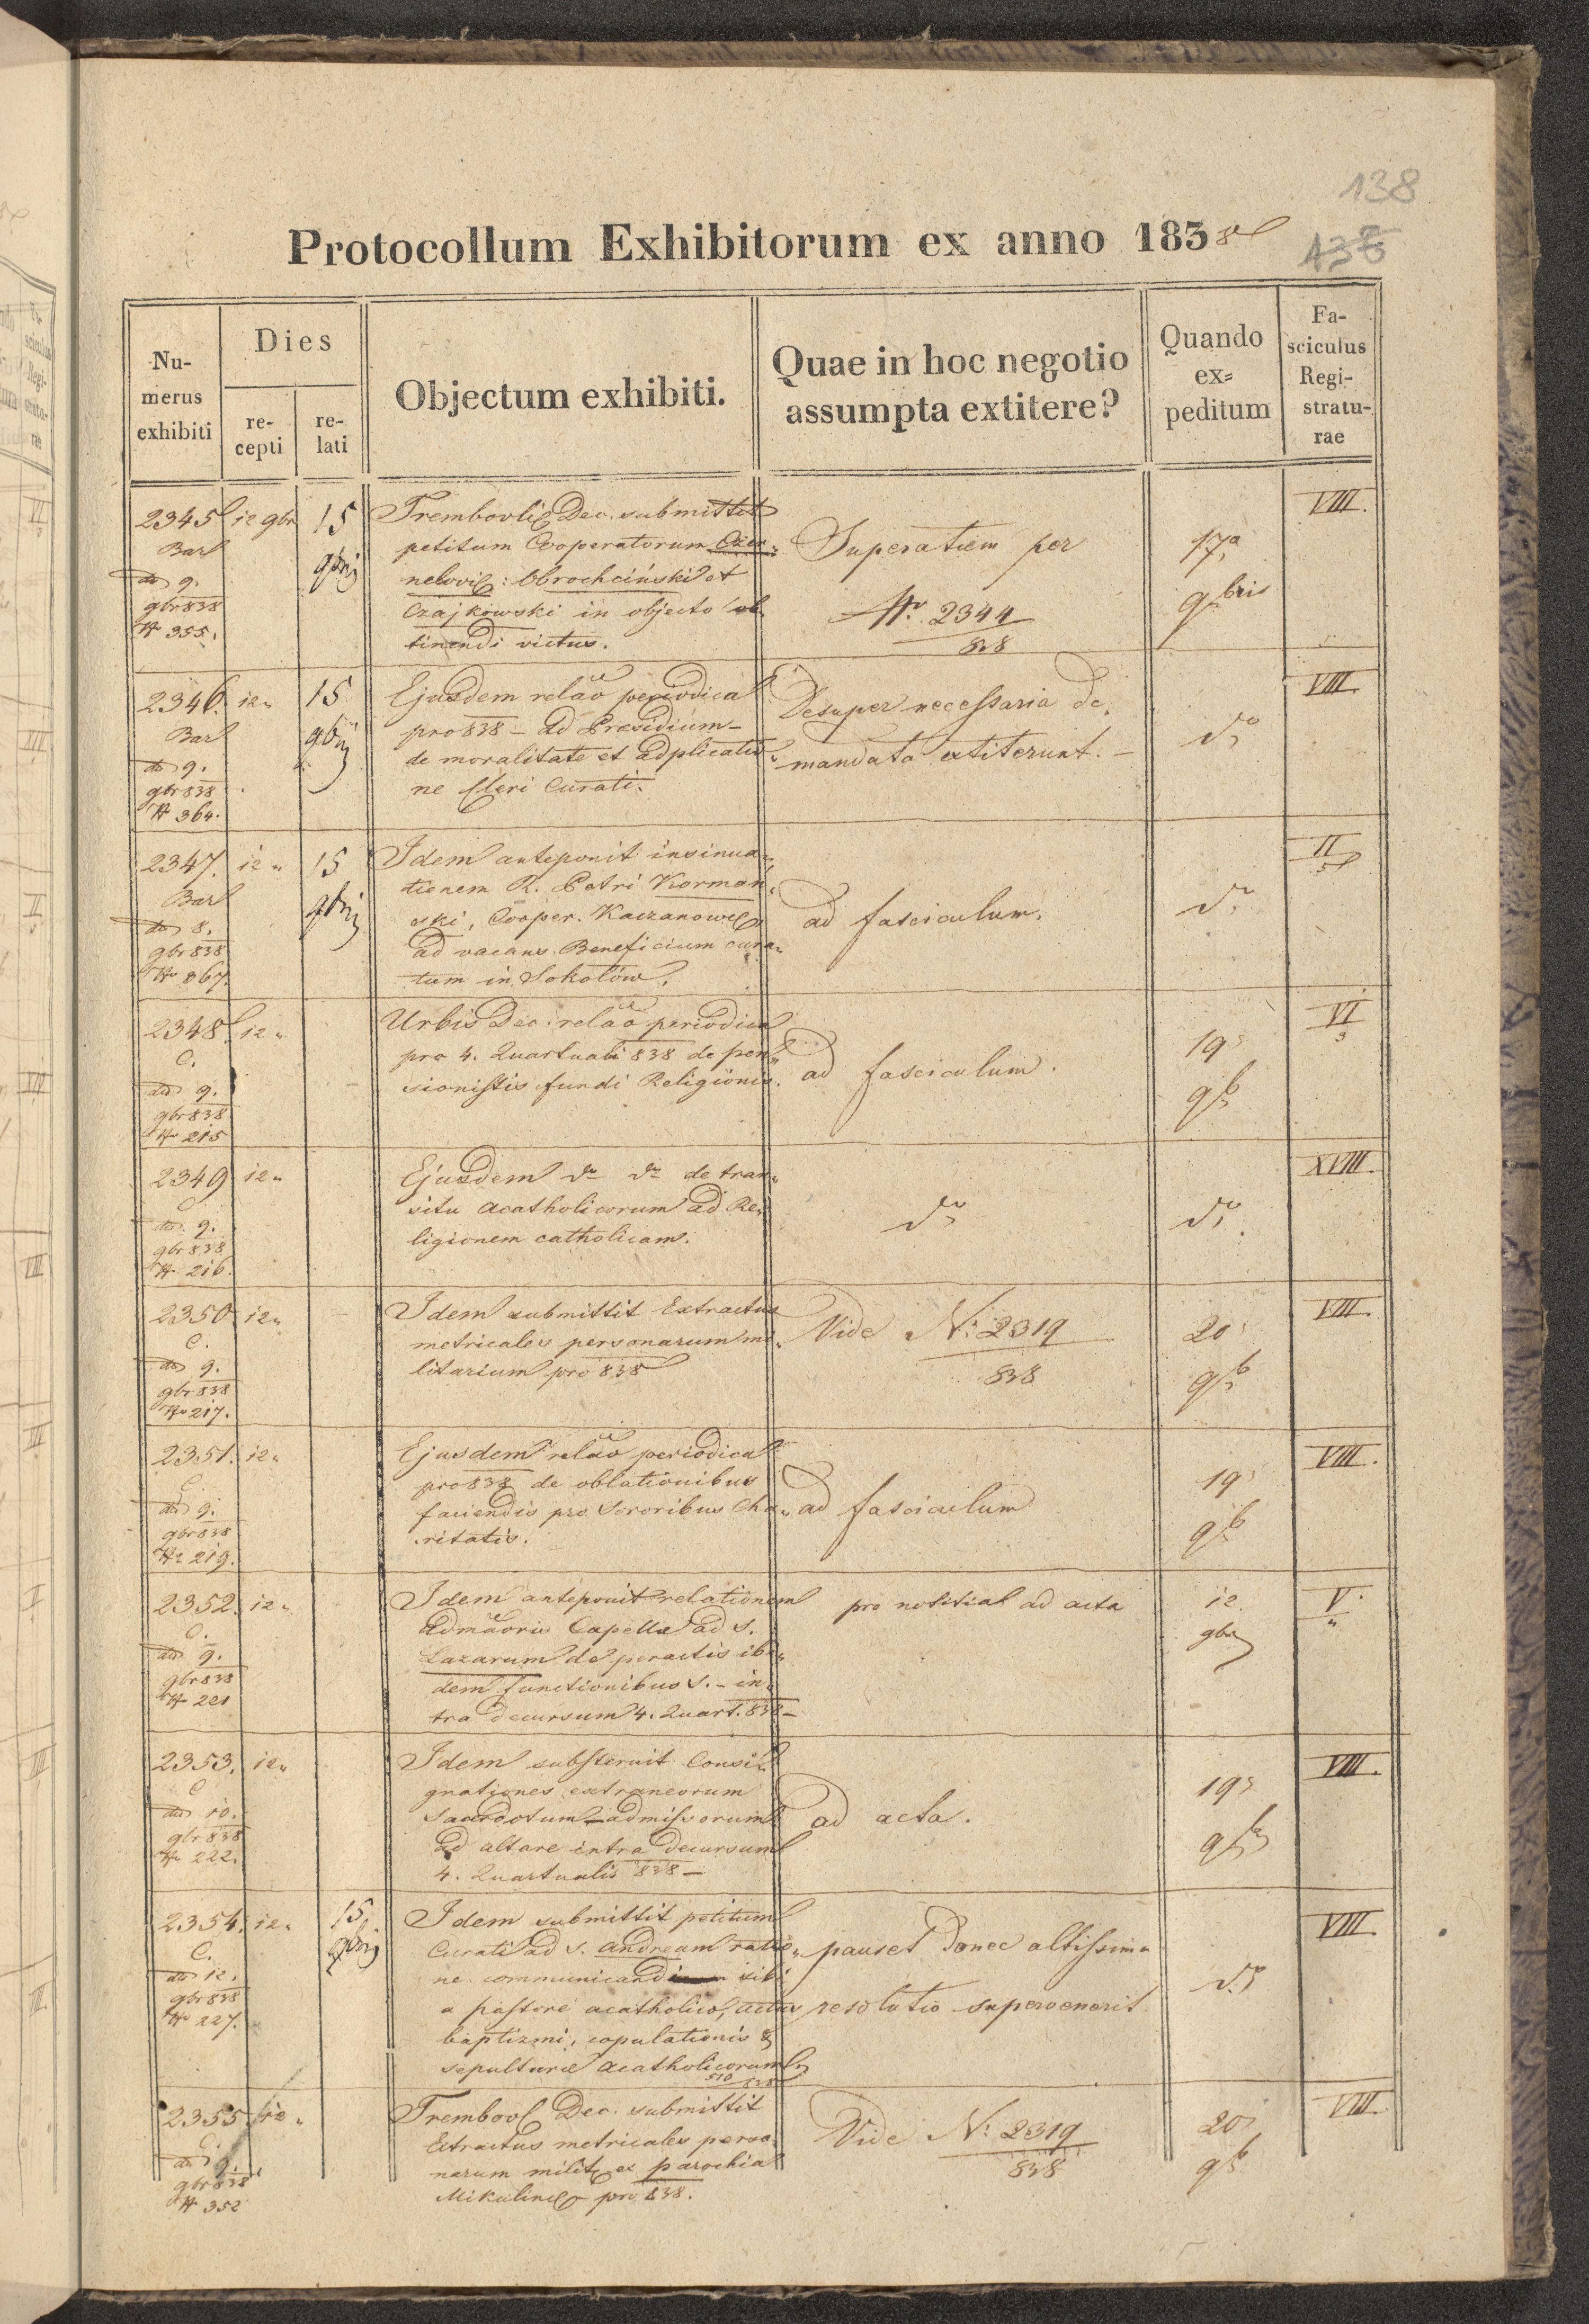 138
Protocollum Exhibitorum ex anno 1838
Nu-
merus
exhibiti
Dies
re-
cepti
re-
lati
Objectum exhibiti.
Quae in hoc negotio
assumpta extitere?
Quando
ex-
peditum
Fa-
sciculus
Regi-
stratu-
rae
2345 12 9br 15 Trembovl Dec. submittit VIII.
Bar petitum Cooperatorum Superatum per 17a
9. : Obrochciński et 9bris
9br 838 Czajkowski in objecto ob- No. 2344
No 355. tinendi victus. 838
2346. 12 15 Ejusdem relao periodica Desuper necessaria de- VIII.
Bar pro 838 - ad Presidium - do
9. de moralitate et adplicatio- mandata extiterunt. -
9br 838 ne Cleri Curati.
No 364.
2347. 12 15 Idem anteponit insinua- II
Bar tionem R. Petri Korman- 5
8. ski, Cooper. Kaczanow ad fasciculum. do
9br 838 ad vacans Beneficium cura-
No 367. tum in Sokolów.
2348. 12 Urbis Dec. relao periodica VI
C. pro 4. Quartuali 838 de pen- ad fasciculum. 19
9. sionistis fundi Religionis. 9b
9br 838
No 215
2349 12 Ejusdem do do de tran- XVIII.
C. situ acatholicorum ad Re- do do
9. ligionem catholicam.
9br 838
No 216.
2350 12 Idem submittit Extractus Vide No. 2319 VIII.
C. metricales personarum mi- 838 20
9. litarium pro 838 9b
9br 838
No 217.
2351. 12 Ejusdem relao periodica VIII.
C. pro 838 de oblationibus 19
9. faciendis pro Sororibus Cha- ad fasciculum 9b
9br 838 ritatis.
No 219.
2352. 12 Idem anteponit relationem pro notitia ad acta 12 V.
C. Capellae ad S. 9br
9. Lazarum de peractis ibi-
9br 838 dem functionibus S. - in-
No 221 tra decursum 4. Quart. 838 -
2353. 12 Idem substernit Consi- VIII.
C gnationes extraneorum 19
10. Sacerdotum admissorum ad acta.
9br 838 ad altare intra decursum
No 222. 4. Quartualis 838 -
2354. 12 15 Idem submittit petitum VIII.
C. Curati ad S. Andream ratio- pauset donec altissima
12. ne communicandi sibi do
9br 838 a pastore acatholico, actus resolutio supervenerit
No 227. baptizmi, copulationis &
sepulturae acatholicorum
510/838
2355 12 Trembovl Dec. submittit VIII
C. Extractus metricales perso- Vide No. 2319 20
9. narum milit ex parochia 838 9b
9br 838 Mikulinc pro 838.
No 352